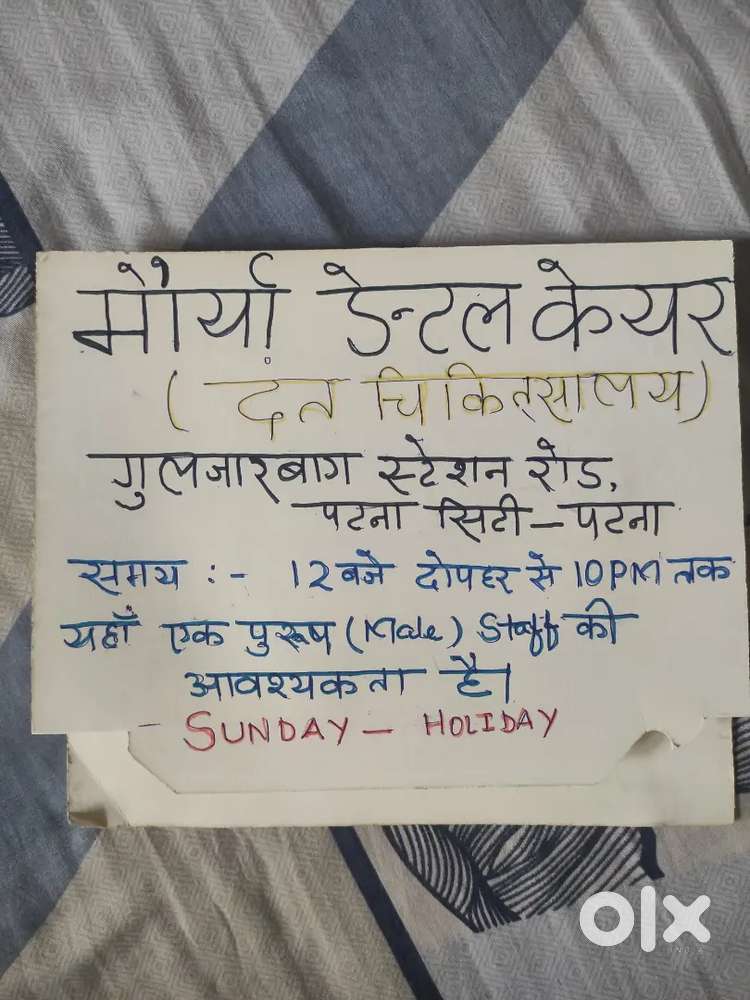 मौर्या डेन्टल केयर
(दंत चिकित्सालय)
गुलजारबाग स्टेशन रोड,
पटना सिटी – पटना
समय :- 12 बजे दोपहर से 10 PM तक
यहाँ एक पुरूष (Male) Staff की
आवश्यकता है।
SUNDAY – HOLIDAY
olx
INDIA